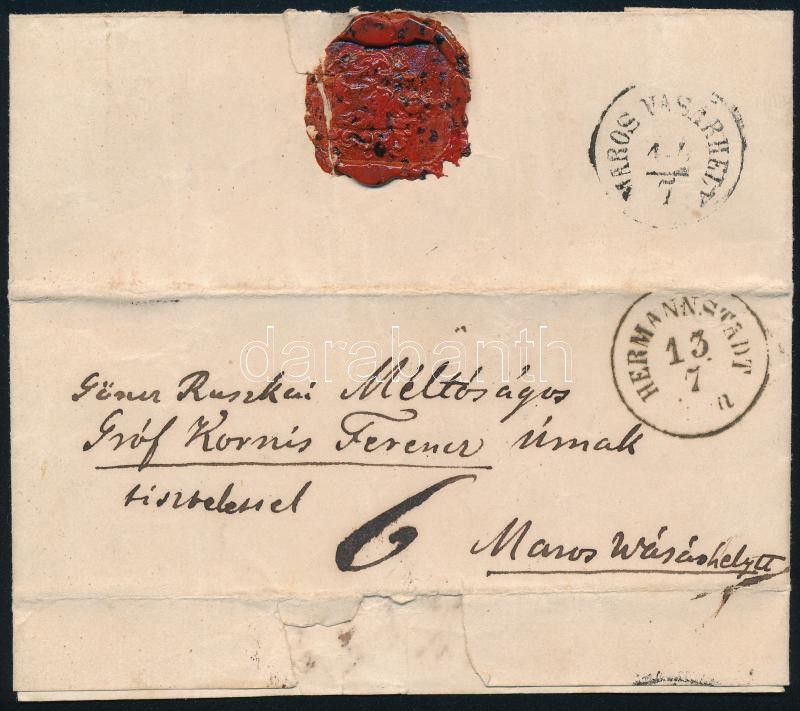 MAROS VASARHELY
7
HERMANNSTADT
13
7
darabanth
Göncz Ruszkai Méltóságos
Gróf Kornis Ferencz úrnak
tisztelettel
6
Maros Wásárhelytt